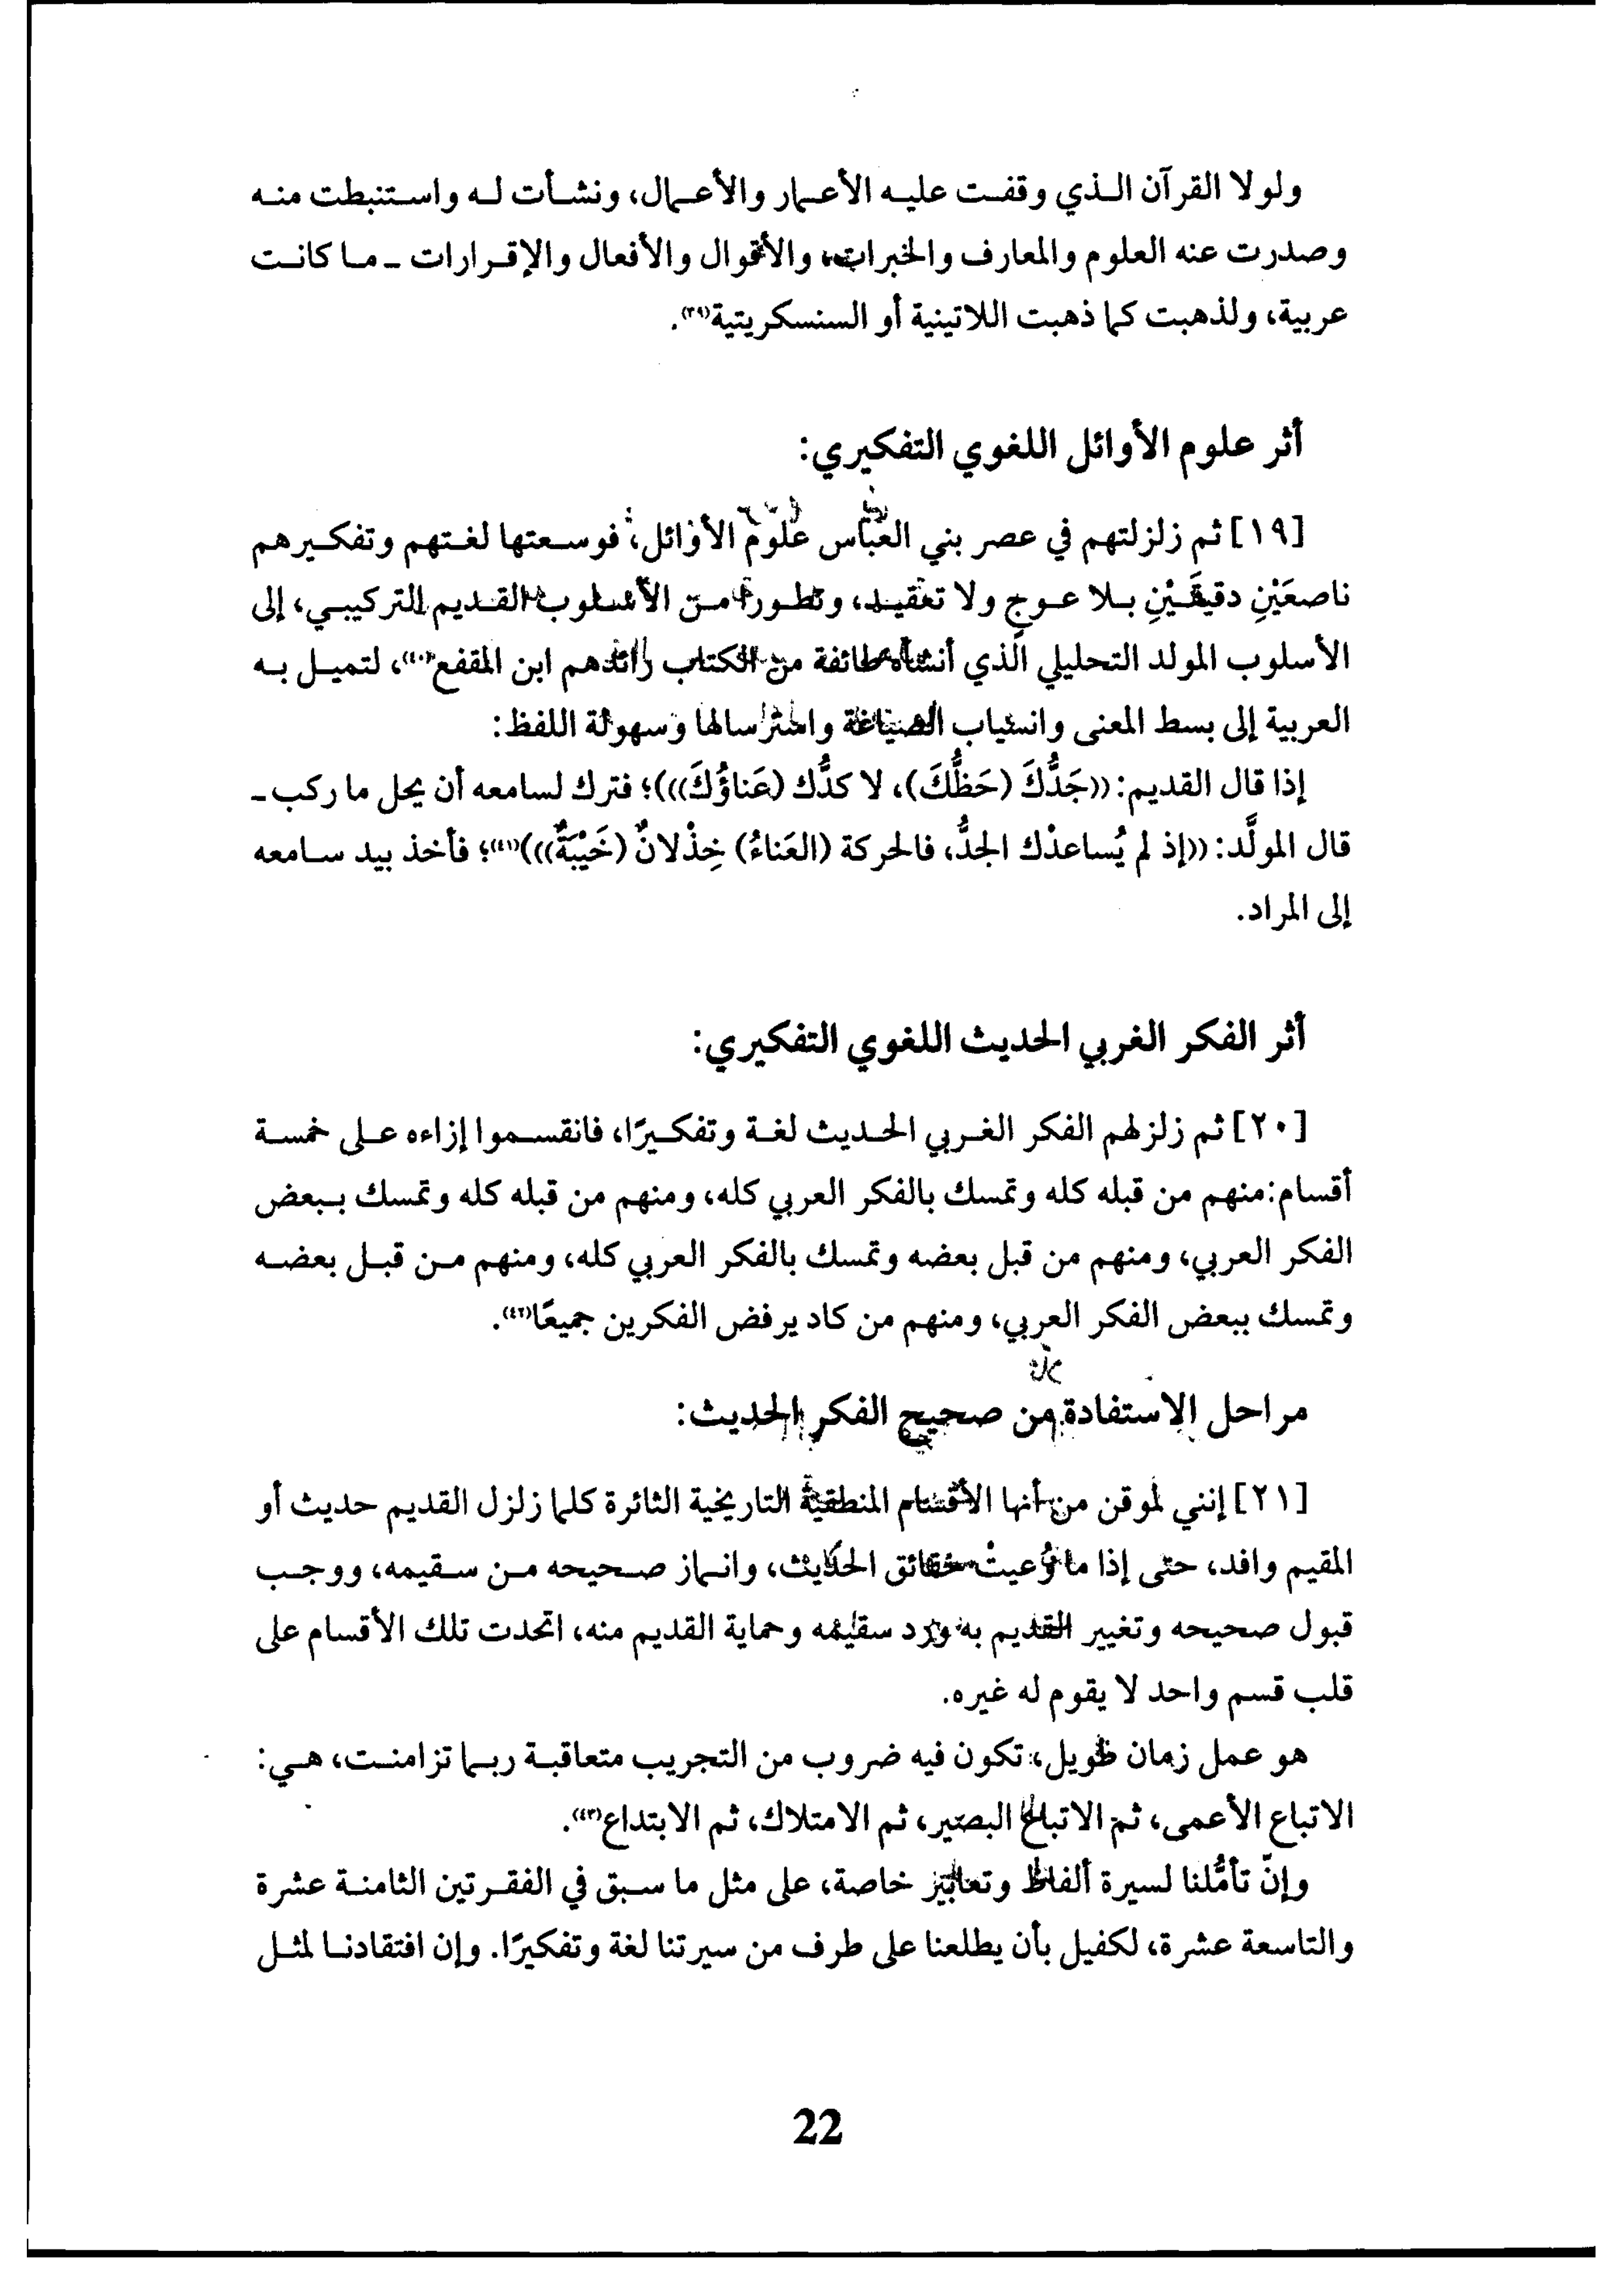 ولولا القرآن الذي وقفت عليه الأعمار والأعمال، ونشأت له واستنبطت منه
وصدرت عنه العلوم والمعارف والخبرات، والأقوال والأفعال والإقرارات - ما كانت
عربية، ولذهبت كما ذهبت اللاتينية أو السنسكريتية(٣٩).
أثر علوم الأوائل اللغوي التفكيري:
[١٩] ثم زلزلتهم في عصر بني العباس علوم الأوائل، فوسعتها لغتهم وتفكيرهم
ناصعَيْنِ دقيقَيْنِ بلا عوجٍ ولا تعقيد، وتطورا من الأسلوب القديم التركيبي، إلى
الأسلوب المولد التحليلي الذي أنشأه طائفة من الكتاب رائدهم ابن المقفع(٤٠)، لتميل به
العربية إلى بسط المعنى وانسياب الصياغة واسترسالها وسهولة اللفظ:
إذا قال القديم: ((جَدُّكَ (حَظُّكَ)، لا كدُّك (عَناؤُكَ)))؛ فترك لسامعه أن يحل ما ركب -
قال المولَّد: ((إذ لم يُساعدْك الجدُّ، فالحركة (العَناءُ) خِذْلانٌ (خَيْبَةٌ)))(٤١)؛ فأخذ بيد سامعه
إلى المراد.
أثر الفكر الغربي الحديث اللغوي التفكيري:
[٢٠] ثم زلزلهم الفكر الغربي الحديث لغة وتفكيرًا، فانقسموا إزاءه على خمسة
أقسام: منهم من قبله كله وتمسك بالفكر العربي كله، ومنهم من قبله كله وتمسك ببعض
الفكر العربي، ومنهم من قبل بعضه وتمسك بالفكر العربي كله، ومنهم من قبل بعضه
وتمسك ببعض الفكر العربي، ومنهم من كاد يرفض الفكرين جميعًا(٤٢).
مراحل الاستفادة من صحيح الفكر الحديث:
[٢١] إنني لموقن من أنها الأقسام المنطقية التاريخية الثائرة كلما زلزل القديم حديث أو
المقيم وافد، حتى إذا ما وُعيتْ حقائق الحديث، وانماز صحيحه من سقيمه، ووجب
قبول صحيحه وتغيير القديم به ورد سقيمه وحماية القديم منه، اتحدت تلك الأقسام على
قلب قسم واحد لا يقوم له غيره.
هو عمل زمان طويل، تكون فيه ضروب من التجريب متعاقبة ربما تزامنت، هي:
الاتباع الأعمى، ثم الاتباع البصير، ثم الامتلاك، ثم الابتداع(٤٣).
وإنّ تأمُّلنا لسيرة ألفاظ وتعابير خاصة، على مثل ما سبق في الفقرتين الثامنة عشرة
والتاسعة عشرة، لكفيل بأن يطلعنا على طرف من سيرتنا لغة وتفكيرًا. وإن افتقادنا لمثل
22